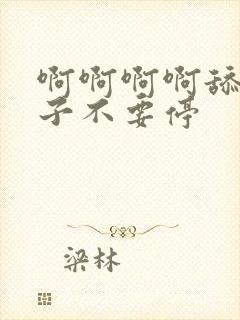 啊啊啊啊舔
子不要停
梁林